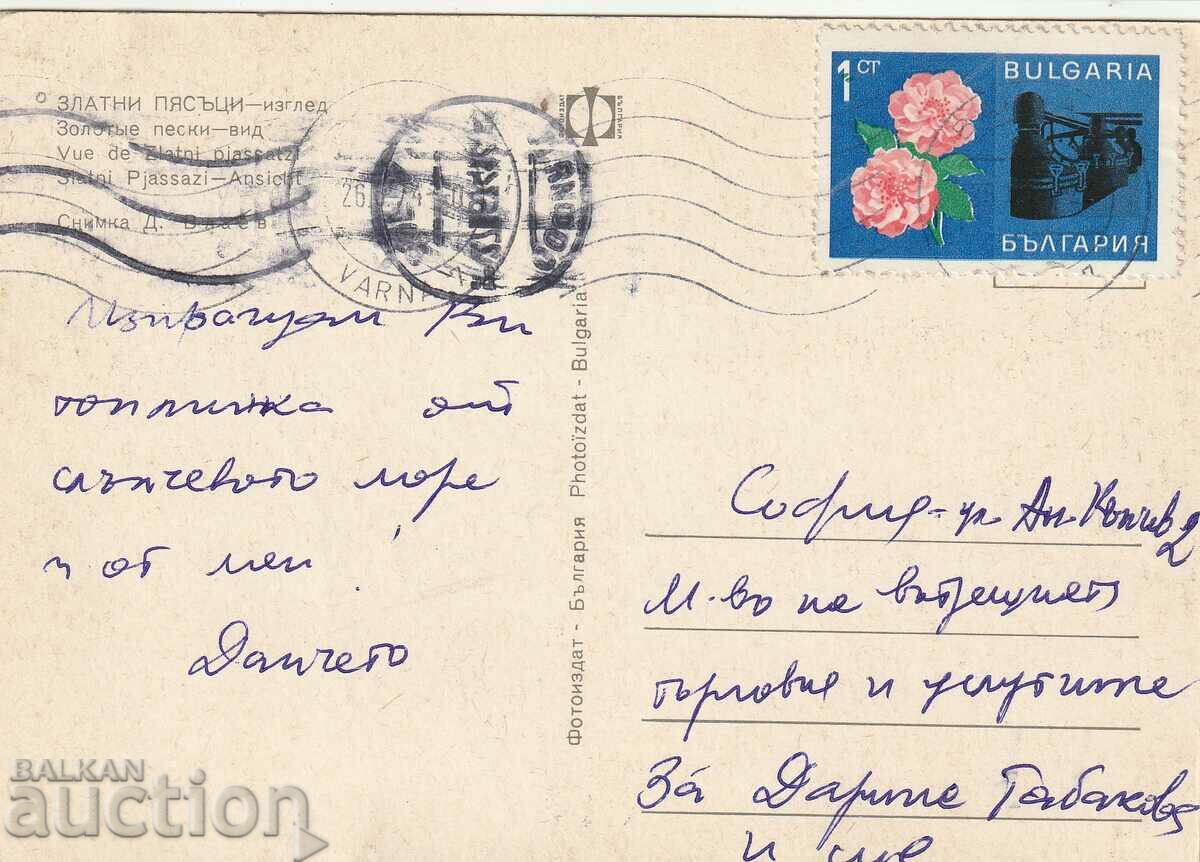 ЗЛАТНИ ПЯСЪЦИ—изглед
Золотые пески—вид
Vue de Zlatni pjassatzi
Slatni Pjassazi—Ansicht
Снимка Д.
26.
VARNA
1 СТ
BULGARIA
БЪЛГАРИЯ
БЪЛГАРИЯ
Изпращам Ви
топлинка от
слънчевото море
и от мен!
Данчето
Фотоиздат - България Photoïzdat - Bulgaria
София - ул. Ан Кънчев 2
М-во на вътрешната
търговия и услугите
За Дарите Табакова
и
BALKAN
auction